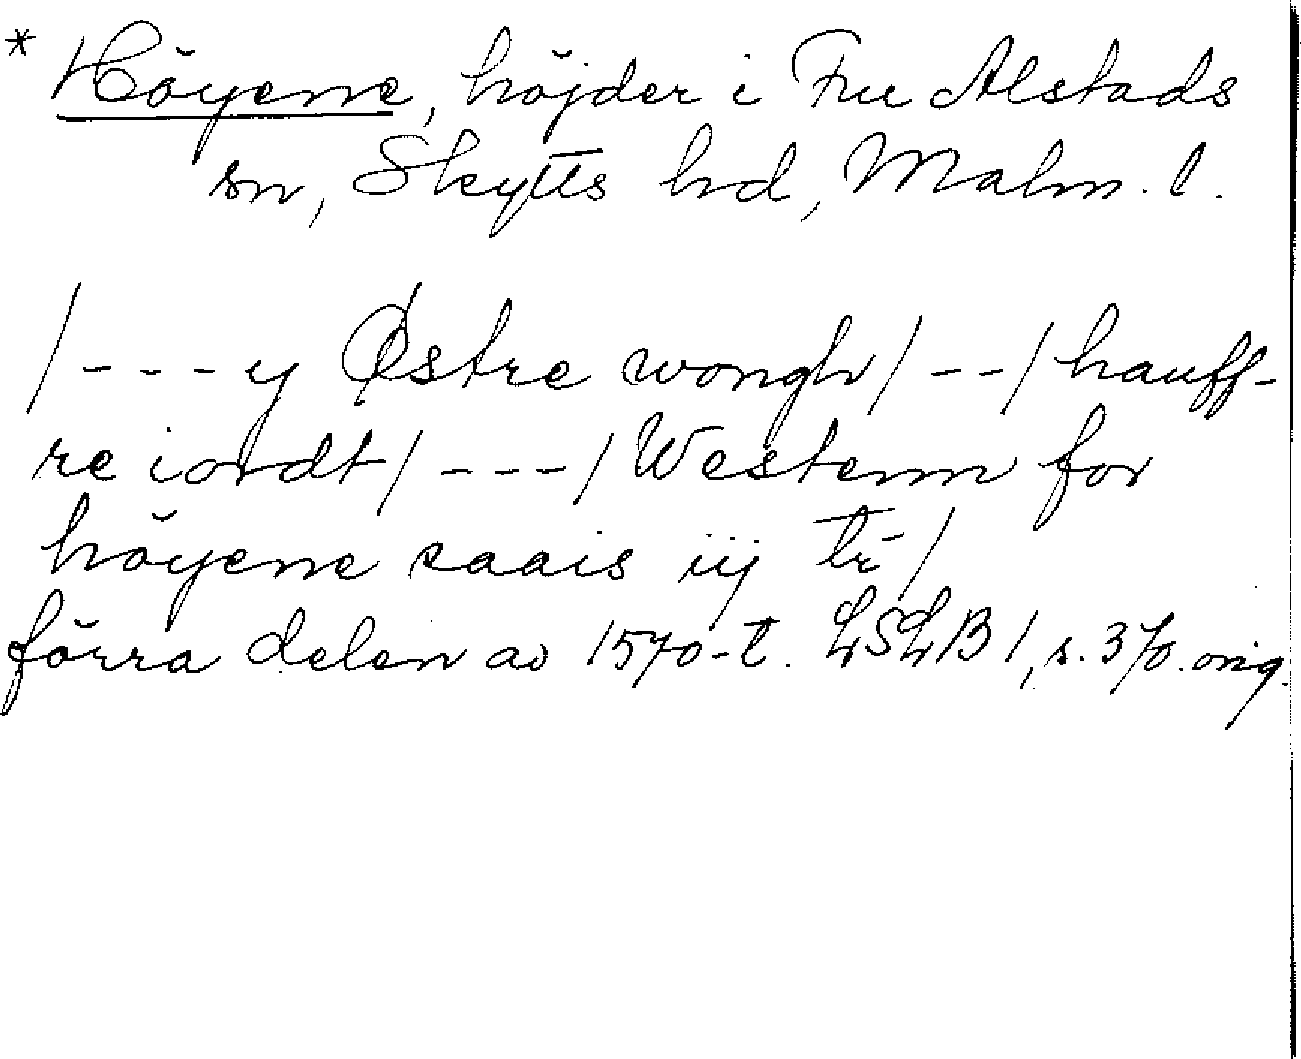 * Höyenne, höjder i Fru Alstads
sn, Skytts hd, Malm. l.
/---y Østre wongh/--/hauff-
re iordt/---/Westenn for
höyenne saais iij
förra delen av 1570-t. LSLB 1, s. 370. orig.